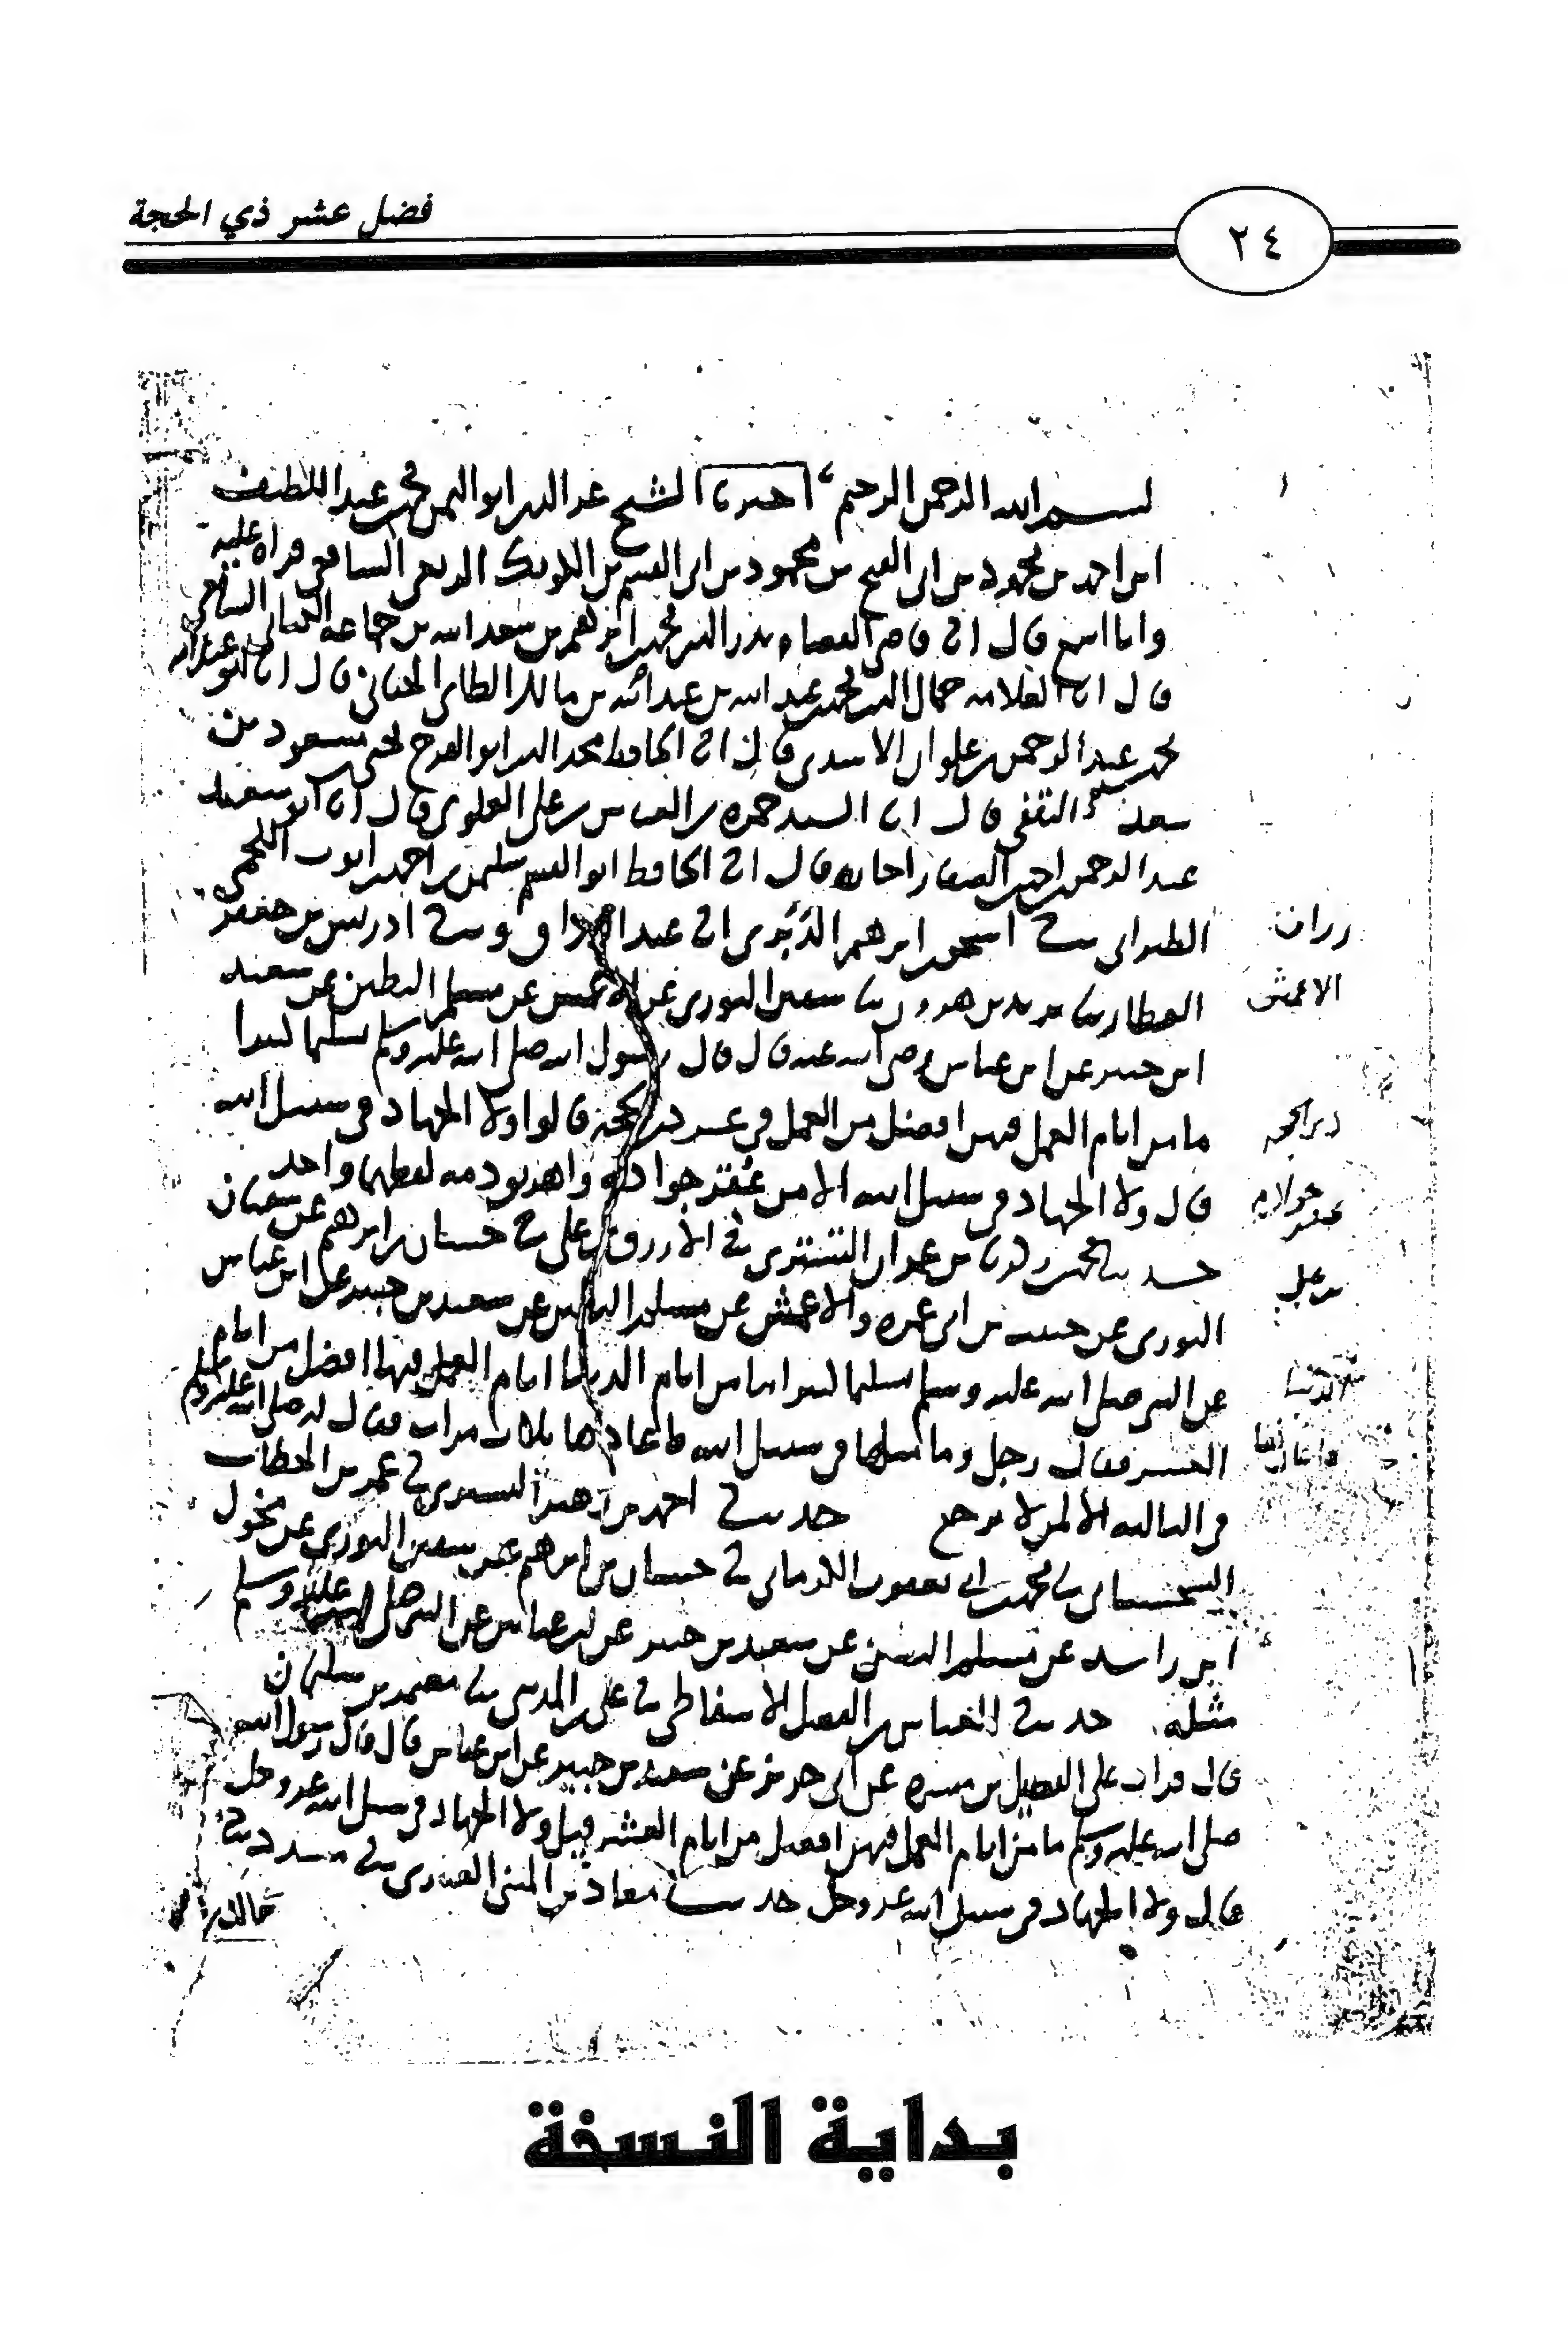 فضل عشر ذي الحجة
٢٤
بسم الله الرحمن الرحيم اخبرنا الشيخ عز الدين ابو اليمن محمد عبد اللطيف
ابن احمد بن محمود بن ابي الفتح بن محمود بن ابي القسم بن الكويك الربعي الشافعي قراه عليه
وانا اسمع قال انا قاضي القضاه بدر الدين محمد ابرهيم بن سعد الله بن جماعه الكناني الشافعي
قال انا العلامه جمال الدين محمد عبد الله بن عبد الله بن مالك الطائي الجياني قال انا ابو عبد الله
محمد عبد الرحمن بن علوان الاسدي قال انا الحافظ مجد الدين ابو الفرج يحيى مسعود بن
سعد الثقفي قال انا السيد حمزه بن العباس بن علي العلوي قال انا ابو سعيد
عبد الرحمن احمد الصفار اجازه قال انا الحافظ ابو القسم سليمن بن احمد ايوب اللخمي
الطبراني ثنا اسحق ابرهيم الدبري انا عبد الرزاق وثنا ادريس بن جعفر
العطار ثنا يزيد بن هرون ثنا سفين الثوري عن الاعمش عن مسلم البطين عن سعيد
ابن جبير عن ابن عباس رضي الله عنه قال قال رسول الله صلى الله عليه وسلم تسليما كثيرا
ما من ايام العمل فيهن افضل من العمل في عشر ذي الحجه قالوا ولا الجهاد في سبيل الله
قال ولا الجهاد في سبيل الله الا من عقر جواده واهريق دمه لفظهما واحد
حدثنا محمد بن عبدان التستري ثنا الازرق بن علي ثنا حسان بن ابرهيم عن سفيان
الثوري عن حبيب بن ابي عمره والاعمش عن مسلم البطين عن سعيد بن جبير عن ابن عباس
عن النبي صلى الله عليه وسلم تسليما كثيرا ما من ايام الدنيا ايام العمل فيها افضل من ايام
العشر فقال رجل وما مثلها في سبيل الله فاعادها ثلاث مرات فقال له صلى الله عليه وسلم
في الثالثه الا لمن لا يرجع حدثنا احمد بن زهير التستري ثنا عمر بن الخطاب
السجستاني ثنا محمد ابي يعقوب الكرماني ثنا حسان بن ابرهيم عن سفين الثوري عن مخول
ابن راشد عن مسلم البطين عن سعيد بن جبير عن ابن عباس عن النبي صلى الله عليه وسلم
مثله حدثنا العباس بن الفضل الاسفاطي ثنا علي بن المديني ثنا معتمر بن سليمان
قال قرات على الفضيل بن ميسره عن ابي حريز عن سعيد بن جبير عن ابن عباس قال قال رسول الله
صلى الله عليه وسلم ما من ايام العمل فيهن افضل من ايام العشر قيل ولا الجهاد في سبيل الله عز وجل
قال ولا الجهاد في سبيل الله عز وجل حدثنا معاذ بن المثنى العنبري ثنا مسدد ثنا
خالد
الاعمش
ذي الحجه
عقر جواده
بن علي
الدنيا
بداية النسخة